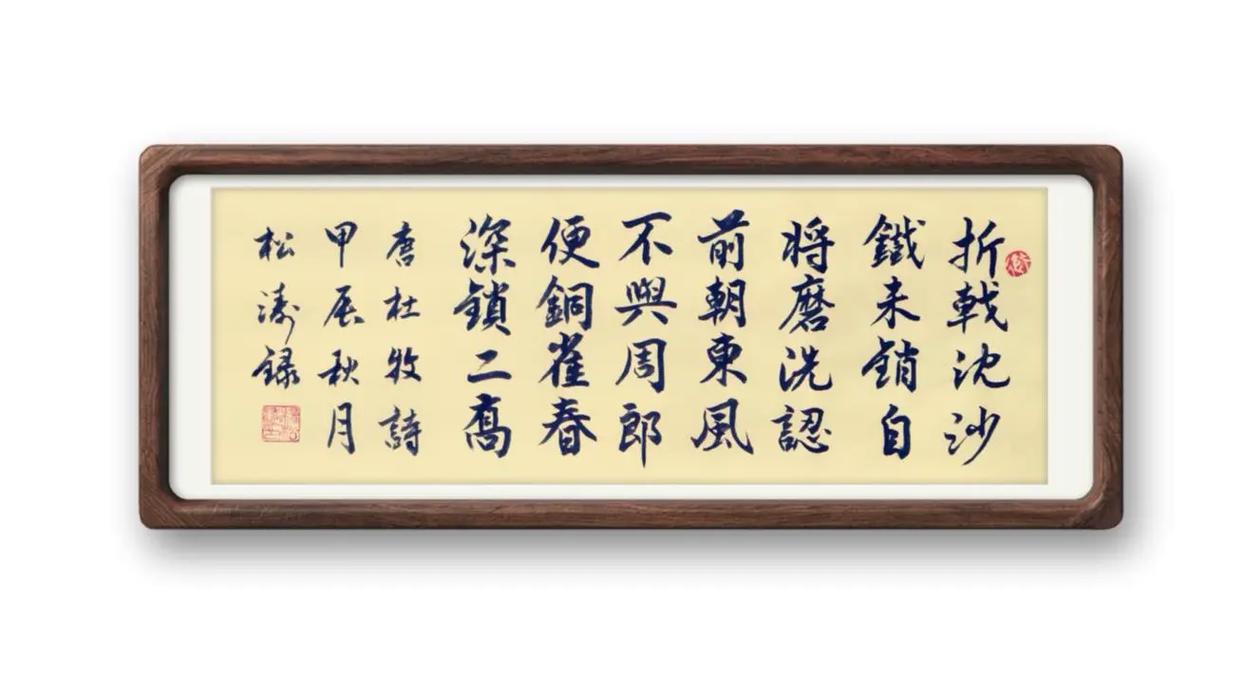 折戟沈沙
鐵未銷自
將磨洗認
前朝東風
不與周郎
便銅雀春
深鎖二喬
唐杜牧詩
甲辰秋月
松濤録